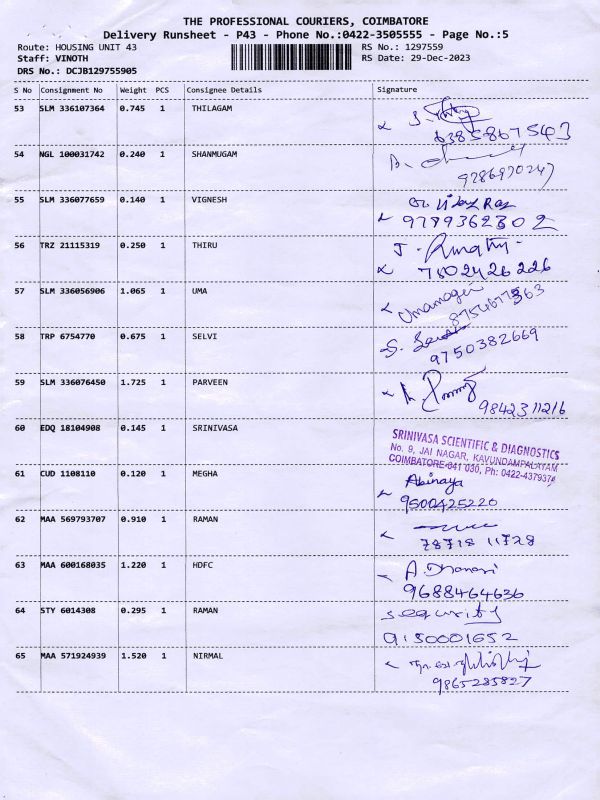 THE PROFESSIONAL COURIERS, COIMBATORE
Delivery Runsheet - P43 - Phone No.:0422-3505555 - Page No.:5
Route: HOUSING UNIT 43 RS No.: 1297559
Staff: VINOTH RS Date: 29-Dec-2023
DRS No.: DCJB129755905
S No Consignment No Weight PCS Consignee Details Signature
53 SLM 336107364 0.745 1 THILAGAM
6385867543
54 NGL 100031742 0.240 1 SHANMUGAM
9286970247
55 SLM 336077659 0.140 1 VIGNESH
9789362302
56 TRZ 21115319 0.250 1 THIRU
7502426226
57 SLM 336056906 1.065 1 UMA
58 TRP 6754770 0.675 1 SELVI
9750382669
59 SLM 336076450 1.725 1 PARVEEN
9842311216
60 EDQ 18104908 0.145 1 SRINIVASA
SRINIVASA SCIENTIFIC & DIAGNOSTICS
No. 9, JAI NAGAR, KAVUNDAMPALAYAM
COIMBATORE-641 030, Ph: 0422-4379374
61 CUD 1108110 0.120 1 MEGHA Abinaya
9500425220
62 MAA 569793707 0.910 1 RAMAN
78718 11728
63 MAA 600168035 1.220 1 HDFC
9688464636
64 STY 6014308 0.295 1 RAMAN security
9150001652
65 MAA 571924939 1.520 1 NIRMAL
9865285827